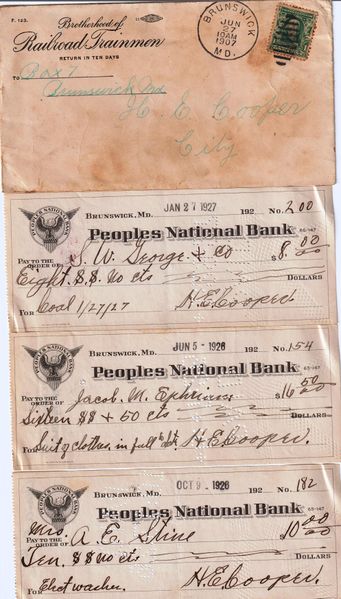 F. 123.
Brotherhood of
Railroad Trainmen
RETURN IN TEN DAYS
TO Box 7
Brunswick Md
H. E. Cooper
City
BRUNSWICK
JUN
27
10AM
1907
MD.
PEOPLES NATIONAL BANK
BRUNSWICK, MD. JAN 27 1927 192 No. 200
Peoples National Bank 65-147
PAY TO THE ORDER OF S. W. George & Co $ 8.00
Eight $$ no cts DOLLARS
FOR Coal 1/27/27 H.E. Cooper.
PEOPLES NATIONAL BANK
BRUNSWICK, MD. JUN 5 - 1926 192 No. 154
Peoples National Bank 65-147
PAY TO THE ORDER OF Jacob M. $ 16 50
Sixteen $$ + 50 cts DOLLARS
FOR Suit of clothes in full H. E. Cooper.
PEOPLES NATIONAL BANK
BRUNSWICK, MD. OCT 9 - 1926 192 No. 182
Peoples National Bank 65-147
PAY TO THE ORDER OF Mrs. A. E. Stine $ 10.00
Ten. $$ no cts DOLLARS
FOR washer. H.E. Cooper.